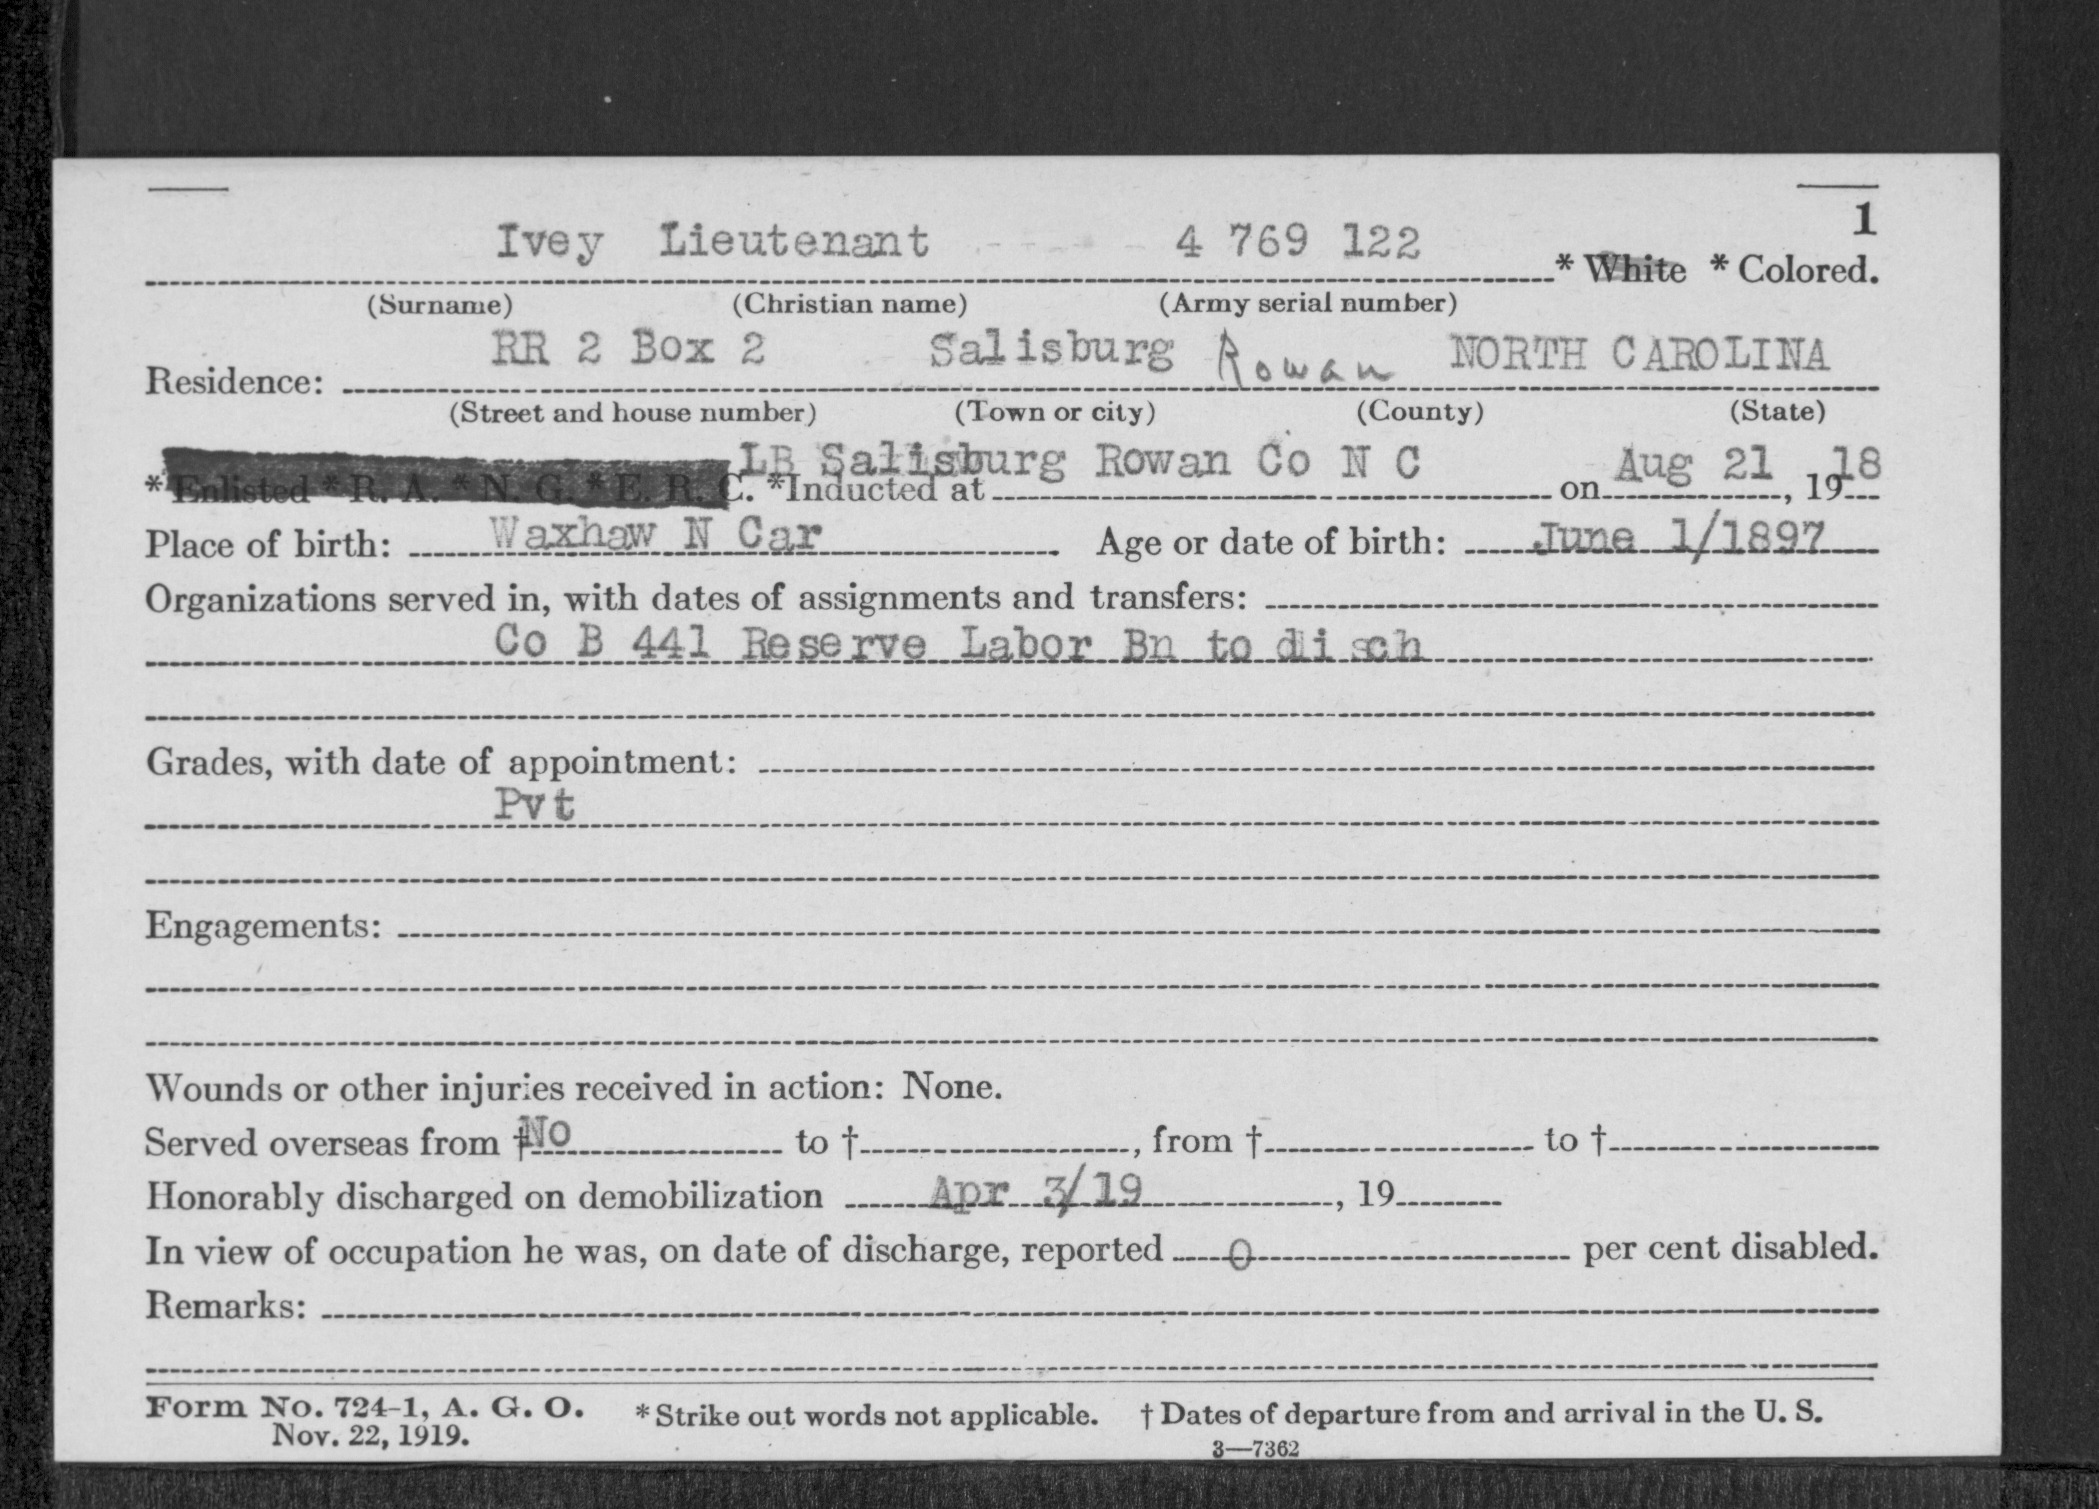 1
Ivey Lieutenant 4 769 122 * White * Colored.
(Surname) (Christian name) (Army serial number)
RR 2 Box 2 Salisburg Rowan NORTH CAROLINA
Residence:
(Street and house number) (Town or city) (County) (State)
LB Salisburg Rowan Co N C Aug 21 18
* Enlisted * R. A. * N. G. * E. R. C. *Inducted at on , 19
Place of birth: Waxhaw N Car Age or date of birth: June 1/1897
Organizations served in, with dates of assignments and transfers:
Co B 441 Reserve Labor Bn to disch
Grades, with date of appointment:
Pvt
Engagements:
Wounds or other injuries received in action: None.
Served overseas from † No to † , from † to †
Honorably discharged on demobilization Apr 3/19 , 19
In view of occupation he was, on date of discharge, reported 0 per cent disabled.
Remarks:
Form No. 724-1, A. G. O. * Strike out words not applicable. † Dates of departure from and arrival in the U. S.
Nov. 22, 1919.
3—7362